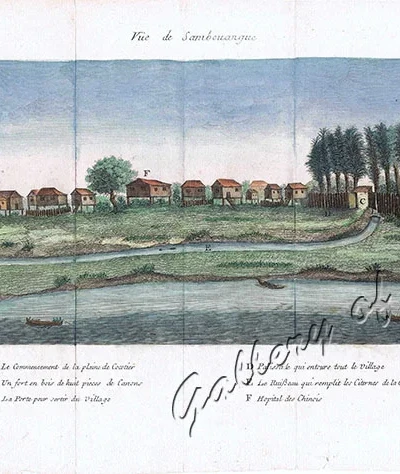 Vüe de Sambouangue
F
C
E
Le Commencement de la plaine de Cocotier
Un fort en bois de huit pieces de Canons
La Porte pour sortir du Village
D Palissade qui entoure tout le Village
E Le Ruisseau qui remplit les Citernes de la
F Hopital des Chinois
Gallery of